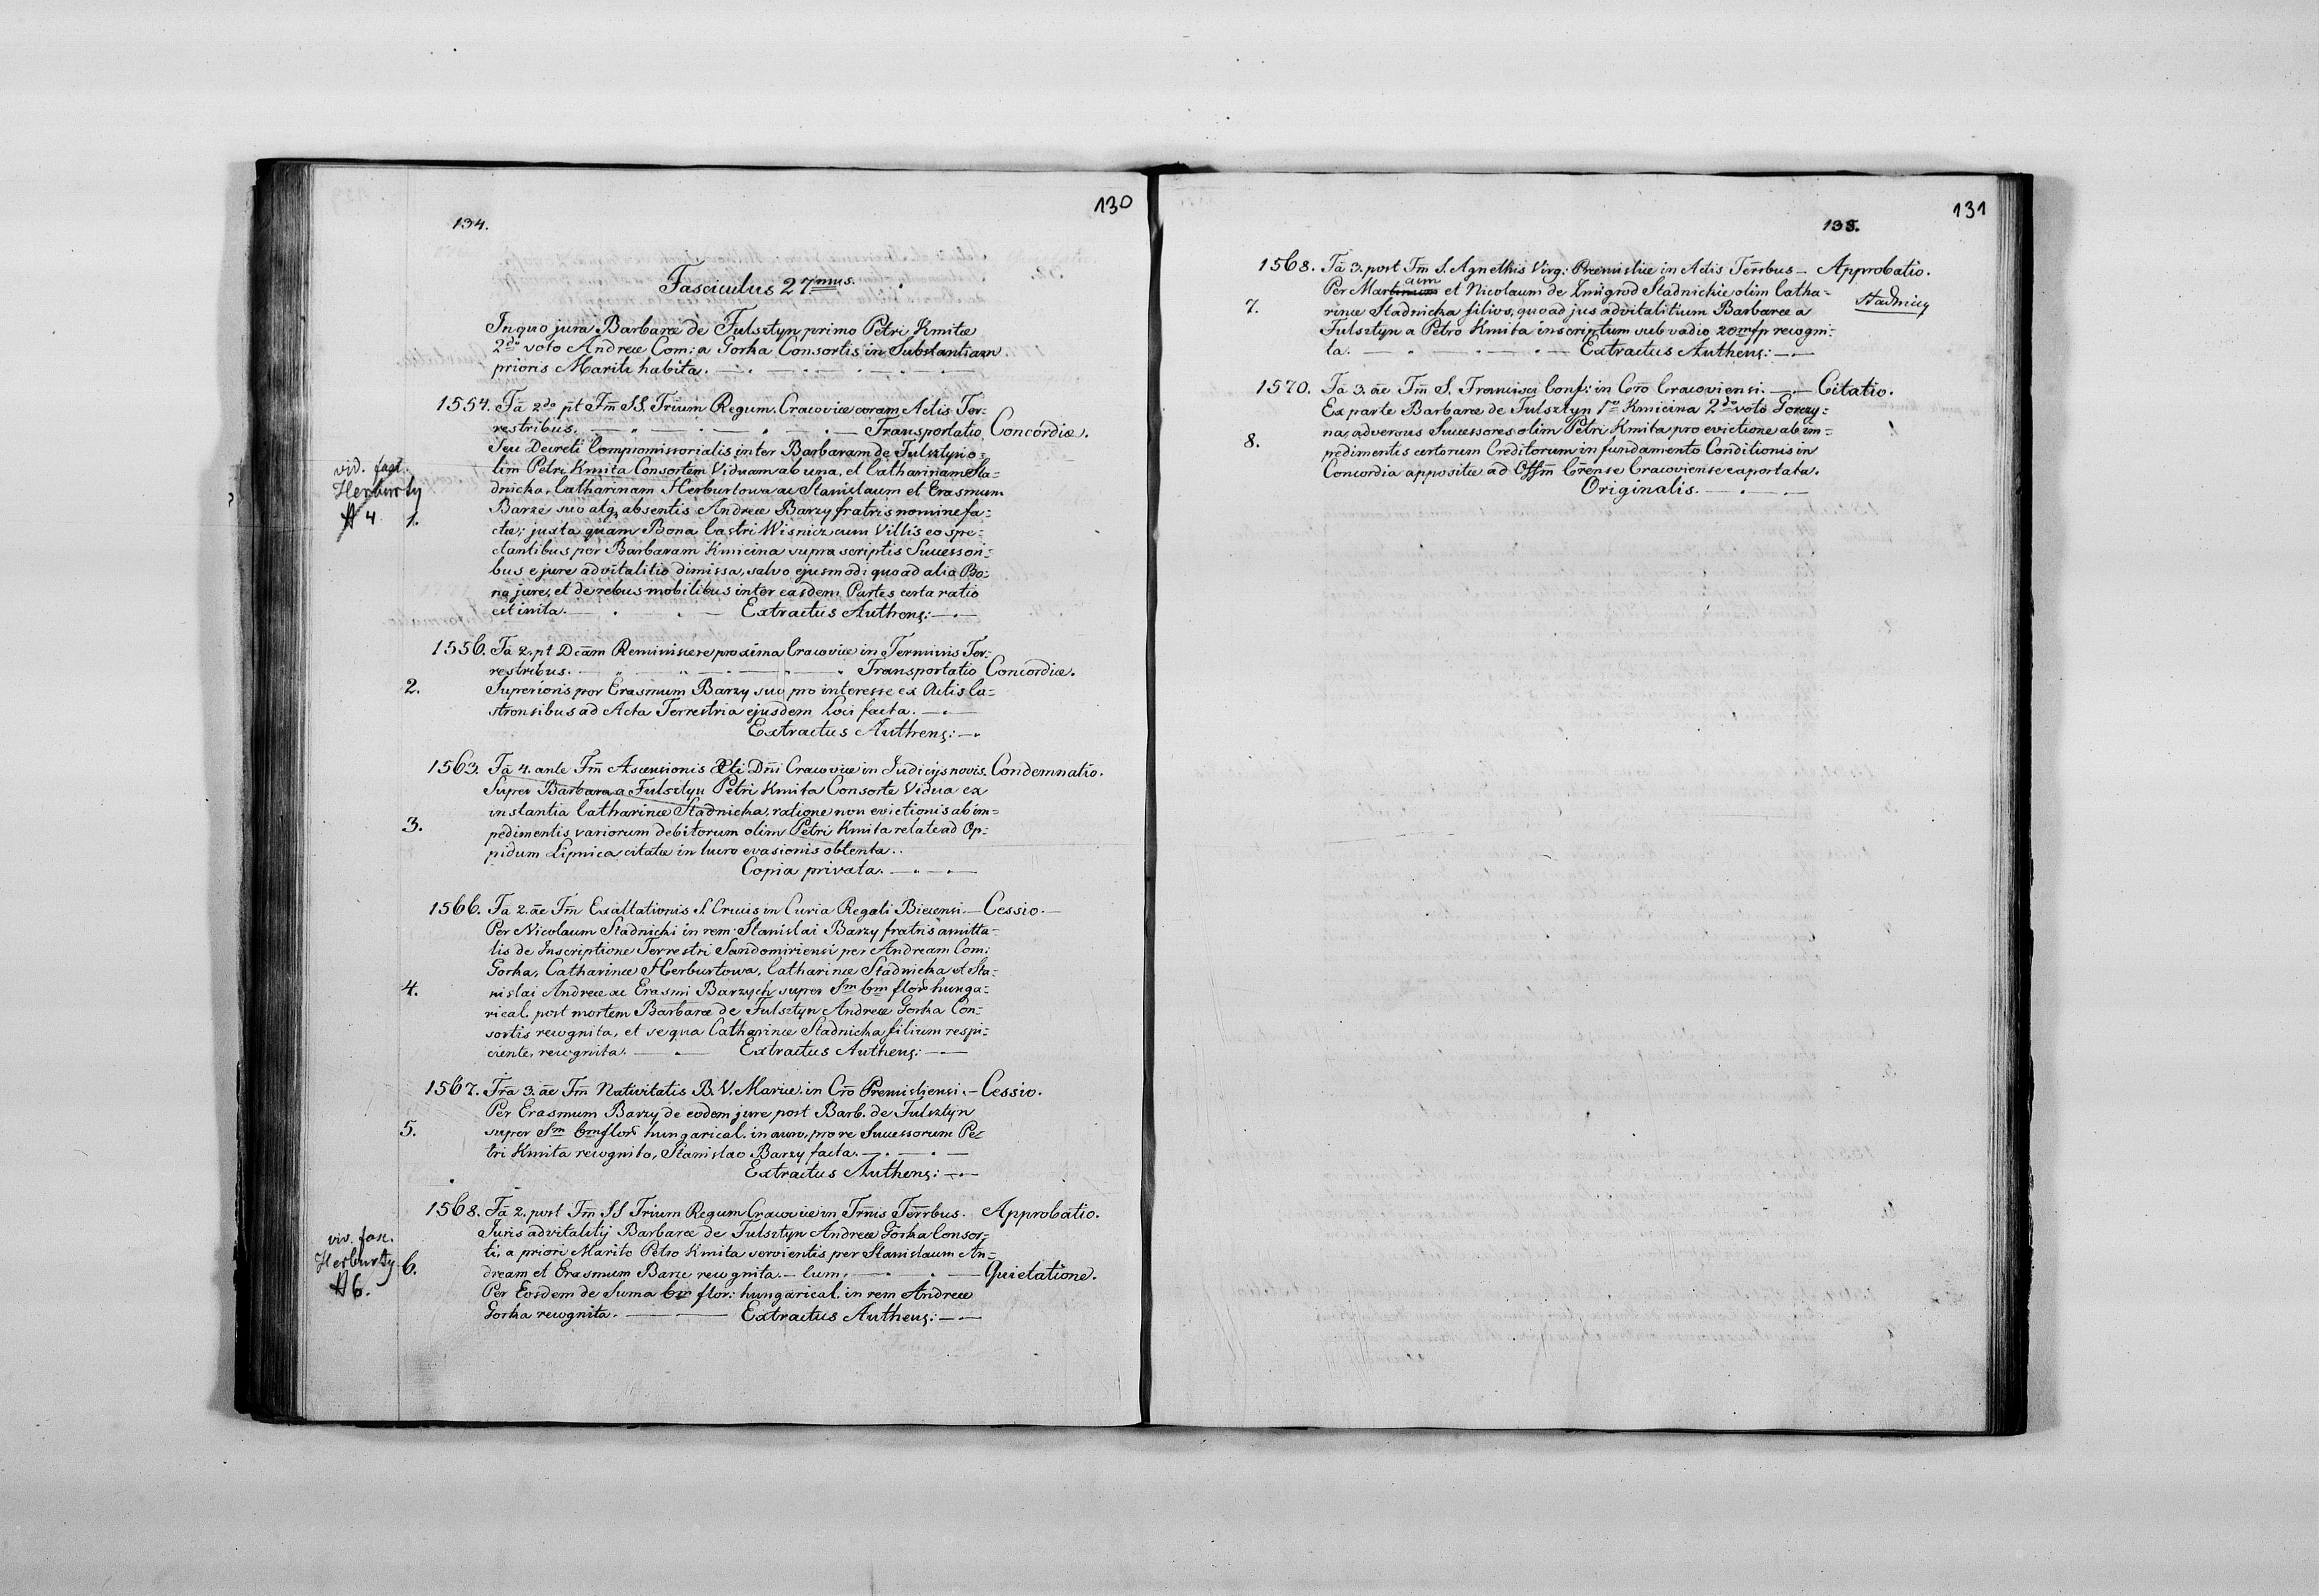 130
134.
Fasciculus 27mus.
In quo jura Barbaræ de Fulsztyn primo Petri Kmitæ
2do voto Andreæ Com: a Gorka Consortis in Substantiam
prioris Mariti habita.
1554. Fa 2do pt Fm SS. Trium Regum. Cracoviæ coram Actis Ter:
restribus. Transportatio Concordiæ.
Seu Decreti Compromissorialis inter Barbaram de Fulsztyn o:
lim Petri Kmita Consortem Viduam ab una, et Catharinam Sta:
dnicka, Catharinam Herburtowa ac Stanislaum et Erasmum
vid. fasc.
Herburty
A 4
1.
Barze suo atq absentis Andreæ Barzy fratris nomine fa:
ctæ; juxta quam Bona Castri Wisnicz cum Villis eo spe:
ctantibus per Barbaram Kmicina supra scriptis Successori:
bus e jure advitalitio dimissa, salvo ejusmodi quo ad alia Bo:
na jure, et de rebus mobilibus inter easdem Partes certa ratio
est inita. Extractus Authens:
1556. Fa 2. pt Dcam Reminiscere proxima Cracoviæ in Terminis Ter:
restribus. Transportatio Concordiæ.
2.
Superioris per Erasmum Barzy suo pro interesse ex Actis Ca:
strensibus ad Acta Terrestria ejusdem Loci facta.
Extractus Authens:
1563. Fa 4. ante Fm Ascensionis Xti Dni Cracoviæ in Judicijs novis. Condemnatio.
Super Barbara a Fulsztyn Petri Kmita Consorte Vidua ex
instantia Catharinæ Stadnicka, ratione non evictionis ab im:
3.
pedimentis variorum debitorum olim Petri Kmita relate ad Op:
pidum Lipnica citatæ in lucro evasionis obtenta..
Copia privata.
1566. Fa 2. ae Fm Exaltationis S. Crucis in Curia Regali Biecensi. Cessio.
Per Nicolaum Stadnicki in rem Stanislai Barzy fratris amitta:
lis de Inscriptione Terrestri Sandomiriensi per Andream Com:
Gorka, Catharinæ Herburtowa, Catharinæ Stadnicka et Sta:
4.
nislai Andreæ ac Erasmi Barzych super Sm 6m flor hunga:
rical. post mortem Barbaræ de Fulsztyn Andreæ Gorka Con:
sortis recognita, et se qua Catharinæ Stadnicka filium respi:
ciente, recognita. Extractus Authens:
1567. Fra 3. ae Fm Nativitatis B. V. Mariæ. in Cro Premisliensi. Cessio.
Per Erasmum Barzy de eodem jure post Barb. de Fulsztyn
5.
super Sm 6m flor hungarical. in auro, pro re Successorum Pe:
tri Kmita recognito, Stanislao Barzy facta.
Extractus Authens:
1568. Fa 2. post Fm SS Trium Regum Cracoviæ in Trnis Terrbus. Approbatio.
Juris advitalitij Barbaræ de Fulsztyn Andreæ Gorka Consor:
ti, a priori Marito Petro Kmita servientis per Stanislaum An:
viv. fasc.
Herburty
A 6.
6.
dream et Erasmum Barze recognita. Cum. Quietatione.
Per Eosdem de Suma 6m flor: hungarical. in rem Andreæ
Gorka recognita. Extractus Authens:
131
135.
1568. Fa 3. post Fm S. Agnethis Virg: Præmisliæ in Actis Terrbus Approbatio.
Per Martinum et Nicolaum de Zmigrod Stadnickie olim Catha:
7.
Stadnicy
rinæ Stadnicka filios, quo ad jus advitalitium Barbaræ a
Fulsztyn a Petro Kmita inscriptum sub vadio 20mfp recogni:
ta. Extractus Authens:
1570. Fa 3. ae Fm S. Francisci Conf: in Cro Cracoviensi. Citatio.
Ex parte Barbaræ de Fulsztyn 1o Kmicina 2do voto Gorczy:
8.
na, adversus Successores olim Petri Kmita pro evictione ab im:
pedimentis certorum Creditorum in fundamento Conditionis in
Concordia appositæ ad Offm Crense Cracoviense exportata.
Originalis.